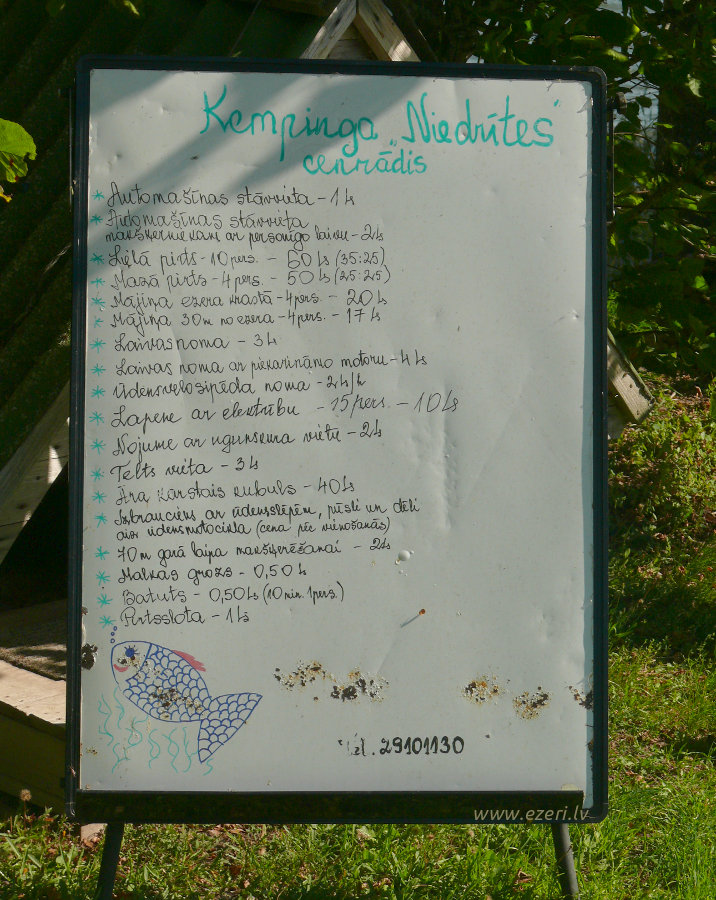 Kempinga „Niedrītes"
cenrādis
* Automašīnas stāvvieta - 1 Ls
* Automašīnas stāvvieta
makšķerniekam ar personīgo laivu - 2 Ls
* Lielā pirts - 10 pers. - 60 Ls (35:25)
* Mazā pirts - 4 pers. - 50 Ls (25:25)
* Mājiņa ezera krastā - 4 pers. - 20 Ls
* Mājiņa 30 m no ezera - 4 pers. - 17 Ls
* Laivas noma - 3 Ls
* Laivas noma ar piekarināmo motoru - 4 Ls
* Ūdensvelosipēda noma - 2 Ls/h
* Lapene ar elektrību - 15 pers. - 10 Ls
* Nojume ar ugunskura vietu - 2 Ls
* Telts vieta - 3 Ls
* Āra karstais kubuls - 40 Ls
* Izbrauciens ar ūdensslēpēm, pūsli un dēli
aiz ūdensmotocikla (cena pēc vienošanās)
* 70 m garā laipa makšķerēšanai - 2 Ls
* Malkas grozs - 0,50 Ls
* Batuts - 0,50 Ls (10 min. 1 pers.)
* Pirtsslota - 1 Ls
Tel. 29101130
www.ezeri.lv